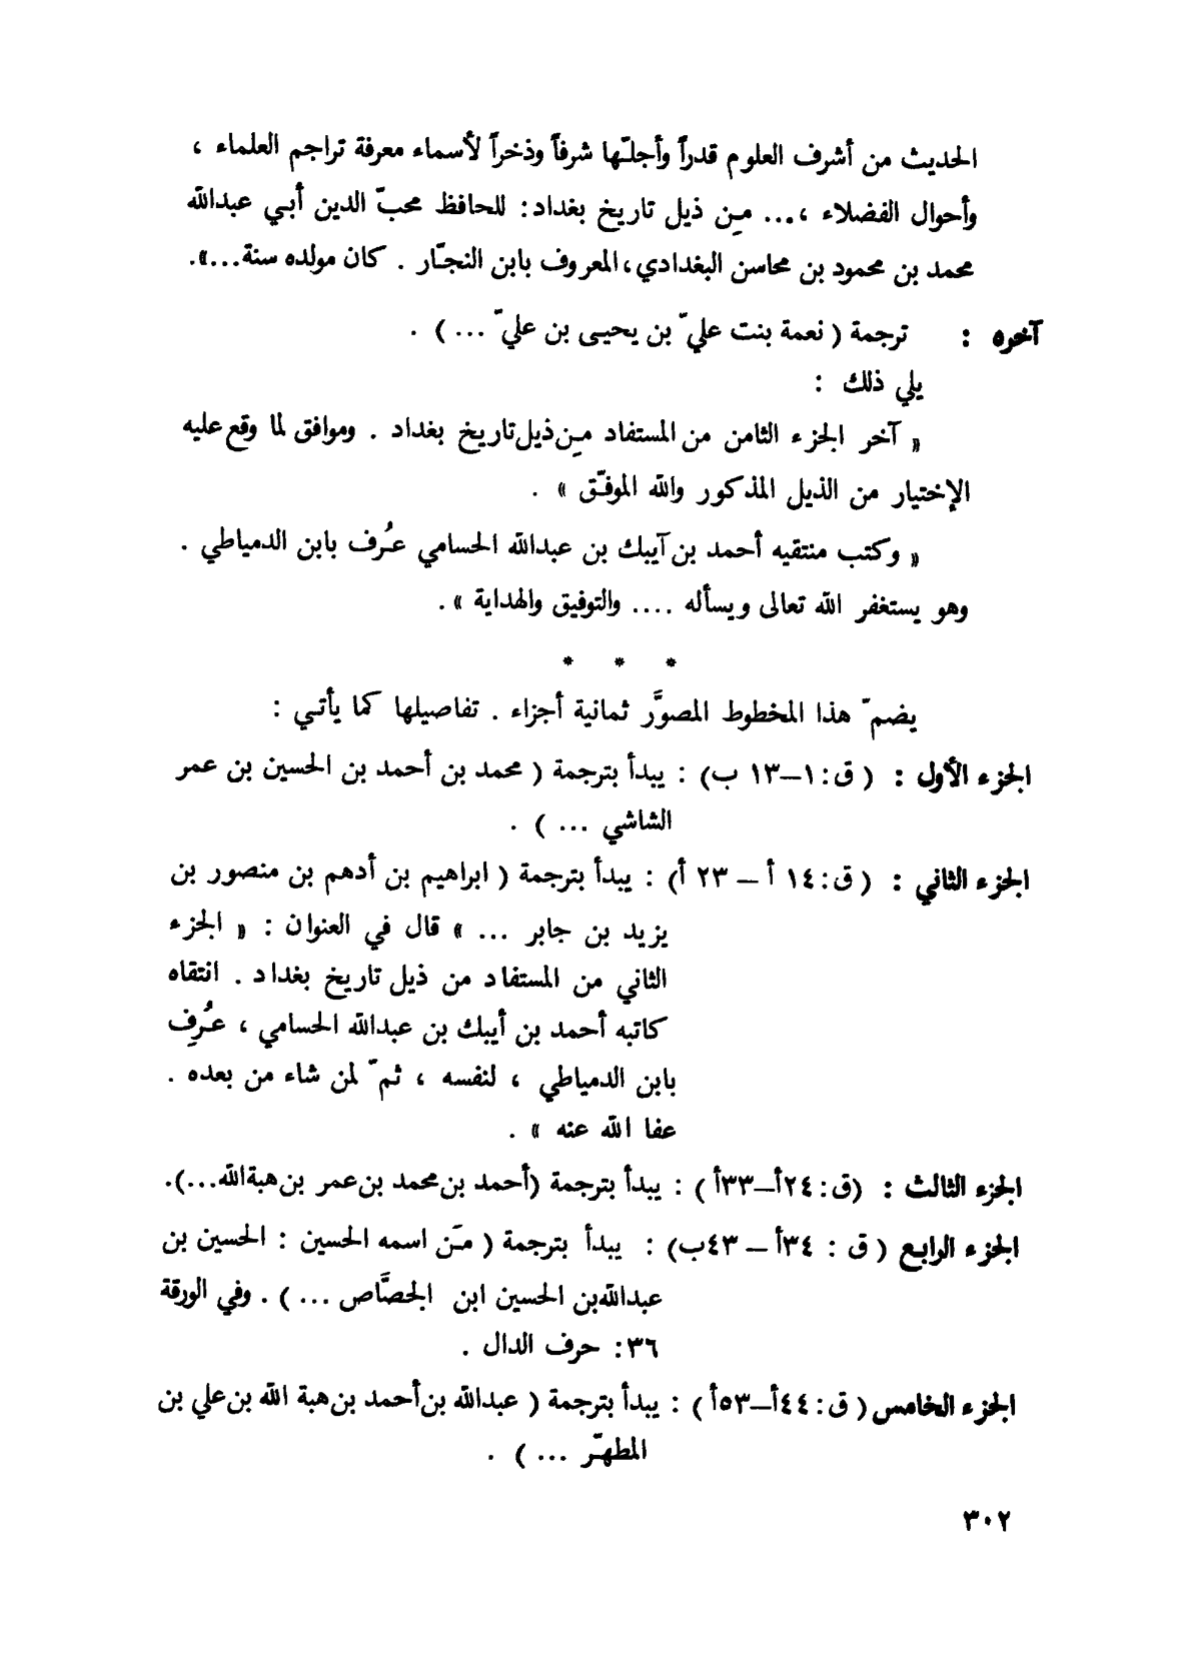 الحديث من أشرف العلوم قدراً وأجلّها شرفاً وذخراً لأسماء معرفة تراجم العلماء ،
وأحوال الفضلاء ،... مِن ذيل تاريخ بغداد: للحافظ محبّ الدين أبي عبدالله
محمد بن محمود بن محاسن البغدادي، المعروف بابن النجّار . كان مولده سنة...».
آخره : ترجمة ( نعمة بنت عليّ بن يحيى بن عليّ ... ) .
يلي ذلك :
« آخر الجزء الثامن من المستفاد مِن ذيل تاريخ بغداد . وموافق لما وقع عليه
الإختيار من الذيل المذكور والله الموفّق » .
« وكتب منتقيه أحمد بن آيبك بن عبدالله الحسامي عُرف بابن الدمياطي .
وهو يستغفر الله تعالى ويسأله .... والتوفيق والهداية » .
* * *
يضمّ هذا المخطوط المصوَّر ثمانية أجزاء . تفاصيلها كما يأتي :
الجزء الأول : ( ق: ١–١٣ ب) : يبدأ بترجمة ( محمد بن أحمد بن الحسين بن عمر
الشاشي ... ) .
الجزء الثاني : ( ق: ١٤ أ – ٢٣ أ) : يبدأ بترجمة ( ابراهيم بن أدهم بن منصور بن
يزيد بن جابر ... » قال في العنوان : « الجزء
الثاني من المستفاد من ذيل تاريخ بغداد . انتقاه
كاتبه أحمد بن أيبك بن عبدالله الحسامي ، عُرِف
بابن الدمياطي ، لنفسه ، ثمّ لمن شاء من بعده .
عفا الله عنه » .
الجزء الثالث : (ق: ٢٤أ–٣٣أ ) : يبدأ بترجمة (أحمد بن محمد بن عمر بن هبةالله...).
الجزء الرابع ( ق : ٣٤أ – ٤٣ب) : يبدأ بترجمة ( مَن اسمه الحسين : الحسين بن
عبدالله بن الحسين ابن الجصَّاص ... ) . وفي الورقة
٣٦: حرف الدال .
الجزء الخامس ( ق: ٤٤أ–٥٣أ ) : يبدأ بترجمة ( عبدالله بن أحمد بن هبة الله بن علي بن
المطهّر ... ) .
٣٠٢